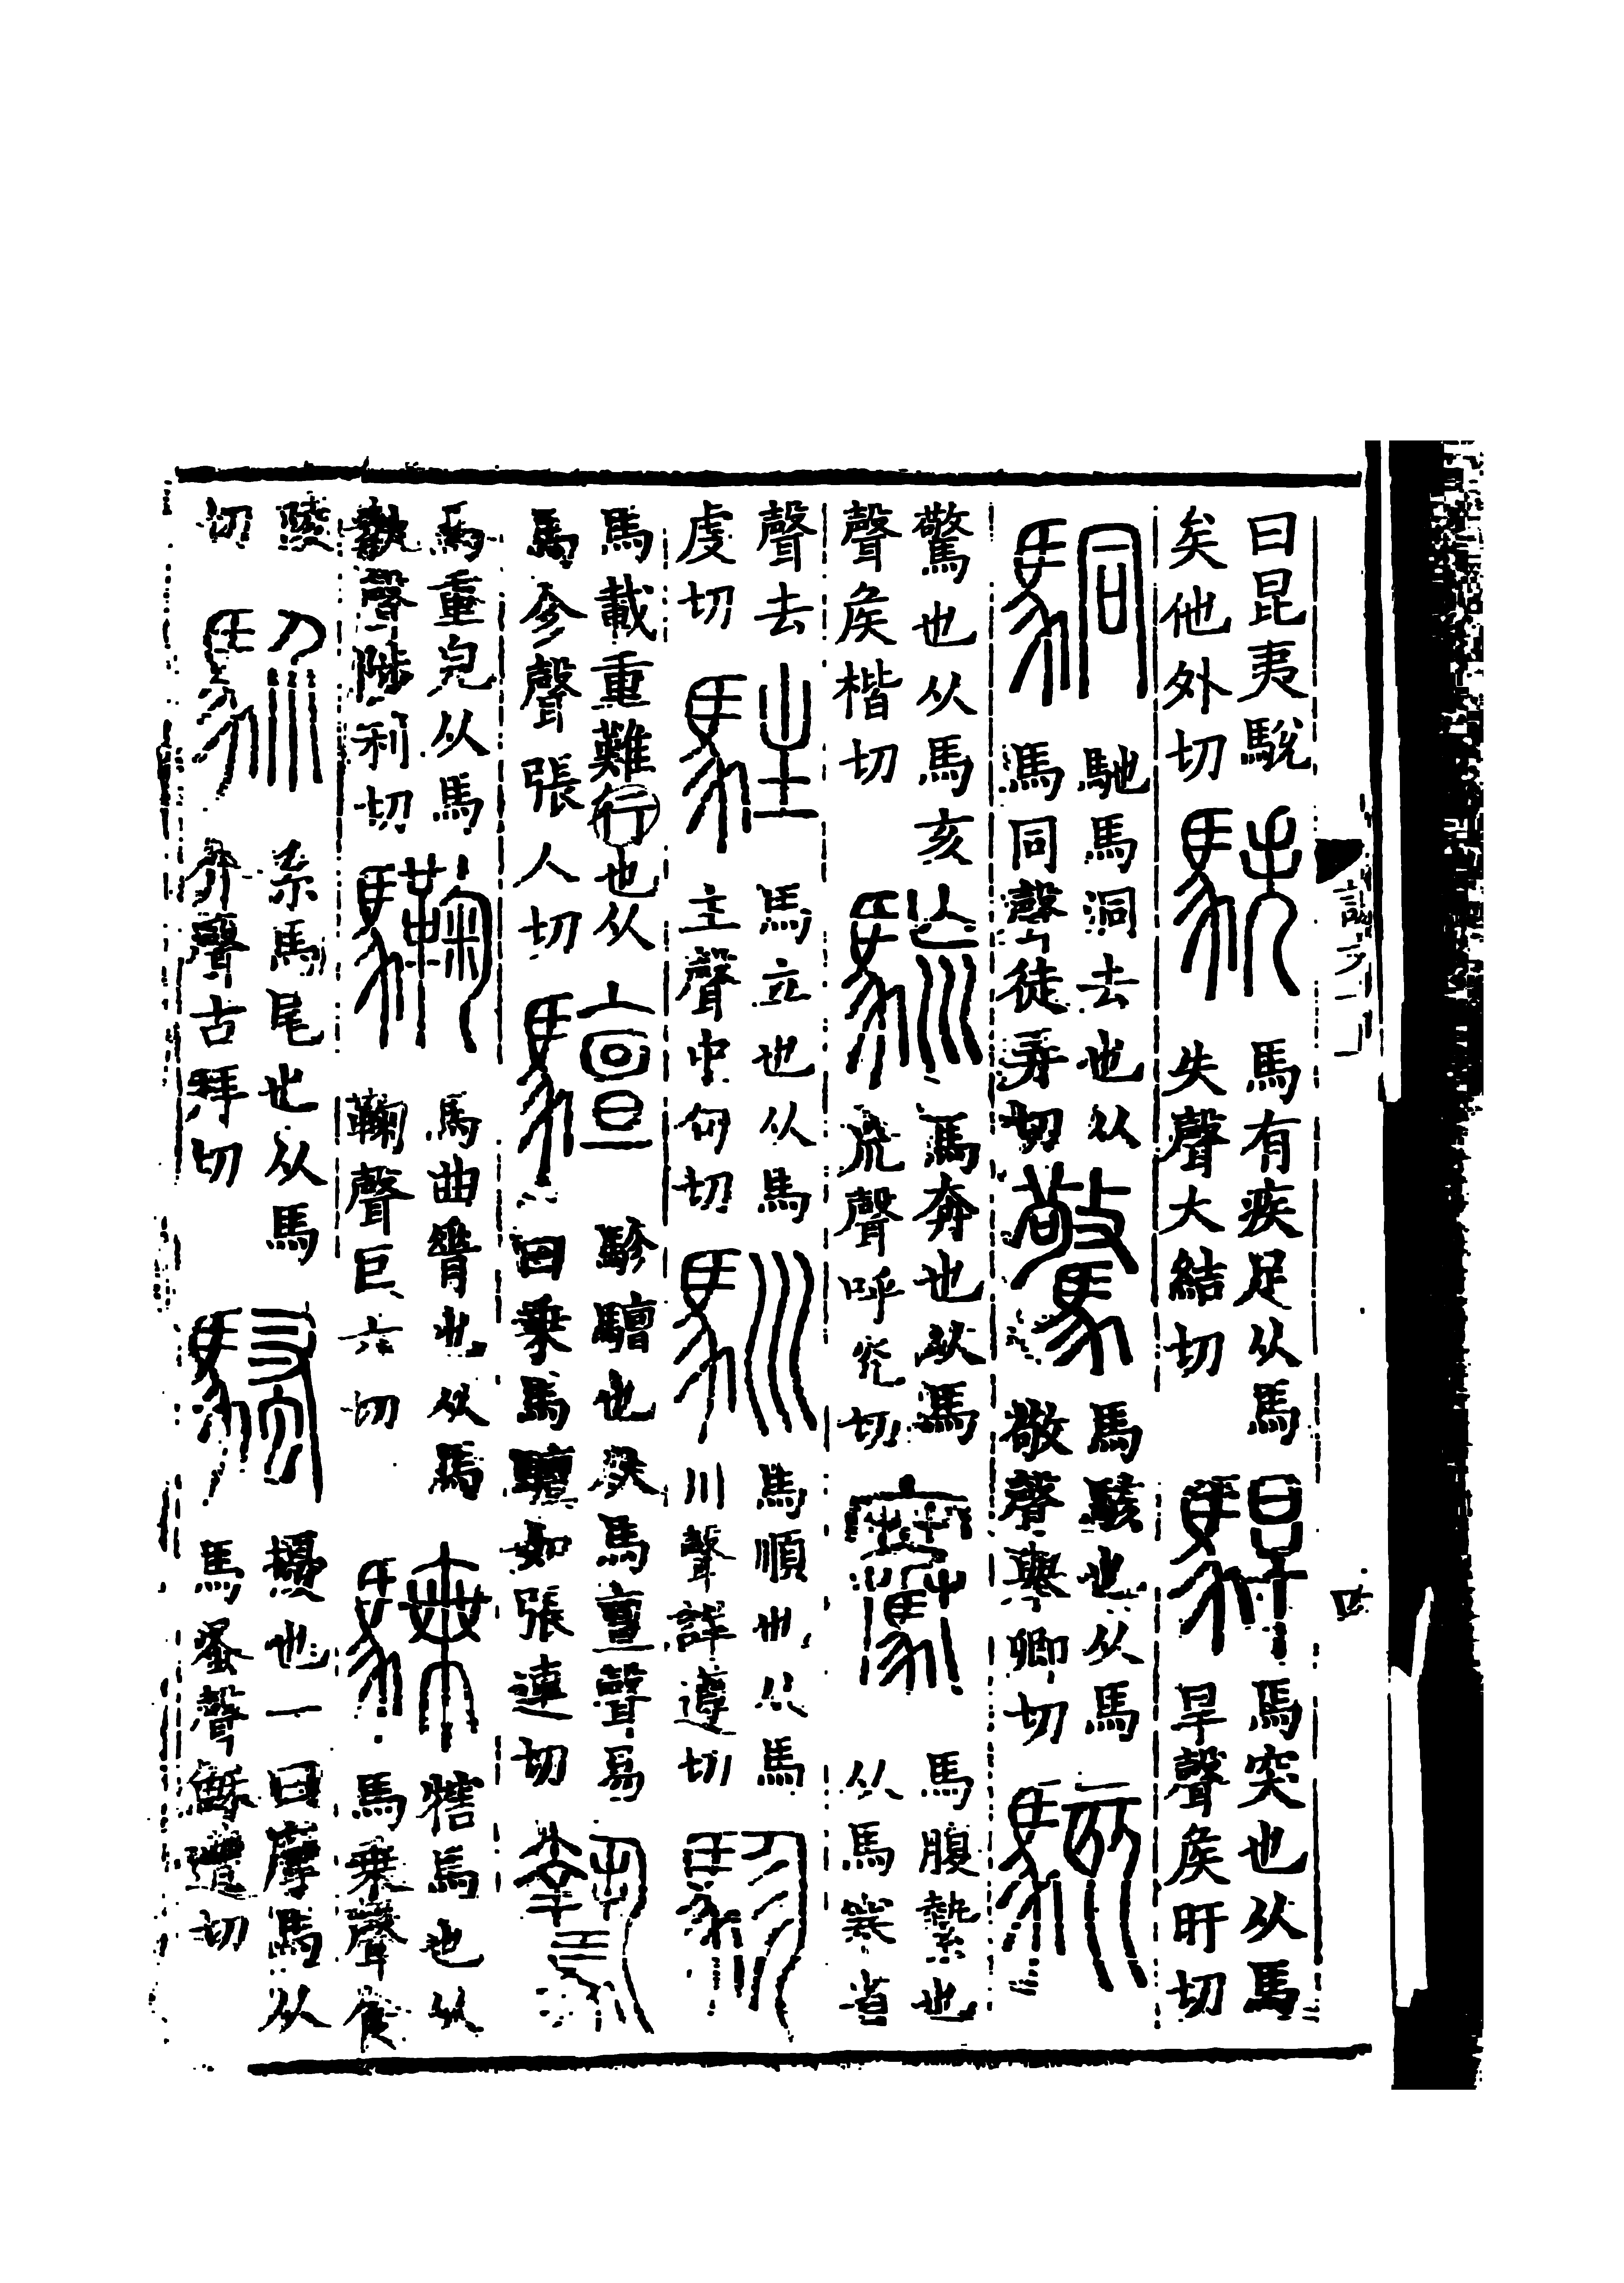 曰昆夷駾
矣他外切
䭿
馬有疾足从馬
失聲大結切
駻
馬突也从馬
旱聲矦旰切
駧
馳馬洞去也从
馬同聲徒弄切
驚
馬駭也从馬
敬聲舉卿切
駭
驚也从馬亥
聲矦楷切
馬奔也从馬
㐬聲呼光切
騫
馬腹縶也
从馬寒省
聲去
虔切
駐
馬立也从馬
主聲中句切
馴
馬順也从馬
川聲詳遵切
駗
馬載重難行也从
馬㐱聲張人切
驙
駗驙也从馬亶聲易
曰乗馬驙如張連切
驇
馬重皃从馬
執聲陟利切
驧
馬曲脊也从馬
鞠聲巨六切
騬
犗馬也从
馬乗聲食
陵
切
䭸
系馬尾也从馬
介聲古拜切
騷
擾也一曰摩馬从
馬蚤聲穌遭切
四